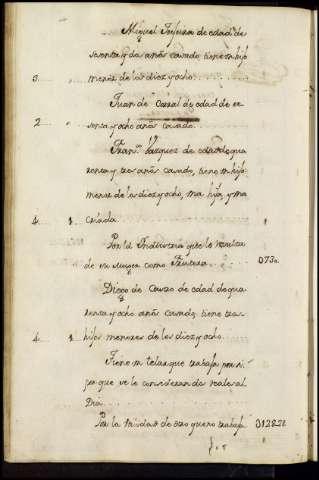 Miguel de edad de
sesenta y dos años casado, tiene un hijo
3 menor de los diez y ocho
Juan de Corral de edad de se
2 senta y ocho años casado
Fran.co Vazquez de edad de qua
renta y tres años casado, tiene un hijo
menor de los diez y ocho, una hija, y una
4 1 criada
Por la Industria que le resulta
de su muger como Frutera D730
Diego de Castro de edad de qua
renta y ocho años casado, tiene tres
4 1 hijos menores de los diez y ocho
Tiene un telar que trabaja por si
por que se le consideran dos reales al
Dia
Por la mitad de otro que no trabaja